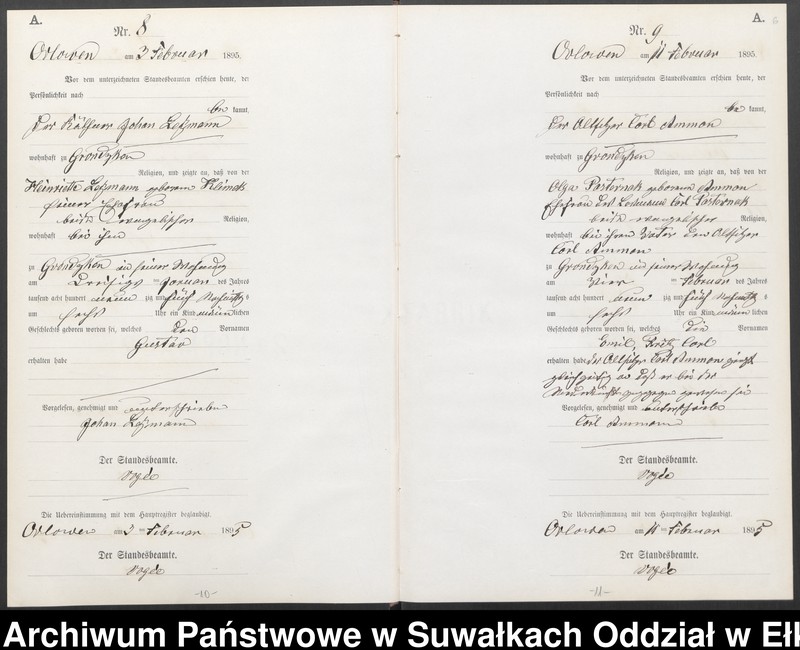 A.
Nr. 8
Orlowen am 3 Februar 1895.
Vor dem unterzeichneten Standesbeamten erschien heute, der
Persönlichkeit nach
be kannt,
der Käthner Johan
wohnhaft zu Grondzken
Religion, und zeigte an, daß von der
Henriette geborene Klimek
seiner Ehefrau
beide Evangelischer Religion,
wohnhaft bei ihm
zu Grondzken in seiner Wohnung
am Januar des Jahres
tausend acht hundert neun zig und fünf Nachmittags
um sechs Uhr ein Kind männlichen
Geschlechts geboren worden sei, welches den Vornamen
Gustav
erhalten habe
Vorgelesen, genehmigt und unterschrieben
Johan
Der Standesbeamte.
Die Uebereinstimmung mit dem Hauptregister beglaubigt.
Orlowen am 3 ten Februar 1895
Der Standesbeamte.
-10-
A.
6
Nr. 9
Orlowen am 11 Februar 1895.
Vor dem unterzeichneten Standesbeamten erschien heute, der
Persönlichkeit nach
be kannt,
der Altsitzer Carl Ammon
wohnhaft zu Grondzken
Religion, und zeigte an, daß von der
Olga Pasternak geborene Ammon
Ehefrau des Carl Pasternak
beide evangelischer Religion,
wohnhaft bei ihrem Vater dem Altsitzer
Carl Ammon
zu Grondzken in seiner Wohnung
am vier ten Februar des Jahres
tausend acht hundert neun zig und fünf Nachmittags
um sechs Uhr ein Kind männlichen
Geschlechts geboren worden sei, welches die Vornamen
Emil, Fritz Carl
erhalten habe der Altsitzer Carl Ammon zeigt
gleichzeitig an daß er bei der
Niederkunft zugegen gewesen sei
Vorgelesen, genehmigt und unterschrieben
Carl Ammon
Der Standesbeamte.
Die Uebereinstimmung mit dem Hauptregister beglaubigt.
Orlowen am 11 ten Februar 1895
Der Standesbeamte.
-11-
Archiwum Państwowe w Suwałkach Oddział w Ełk